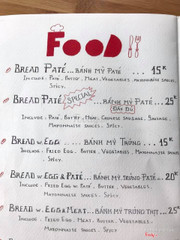 FOOD
BREAD PATÉ...BÁNH MỲ PATÉ ... 15K
INCLUDE: PATE, BUTTER, MEAT, VEGETABLES, MAYONNAISE SAUCE,
SPICY.
SPECIAL
BREAD PATÉ ... BÁNH MỲ PATÉ ... 25K
ĐẦY ĐỦ
INCLUDE: PATE, BUTTER, MEAT, CHINESE SAUSAGE, SAUSAGE,
MAYONNAISE SAUCE, SPICY.
BREAD W.EGG ... BÁNH MỲ TRỨNG ... 15K
INCLUDE: FRIED EGG, BUTTER, VEGETABLES, MAYONNAISE SAUCE,
SPICY.
BREAD W.EGG & PATÉ ... BÁNH MỲ TRỨNG PATÉ ... 20K
INCLUDE: FRIED EGG & PATE, BUTTER, VEGETABLES,
MAYONNAISE SAUCE, SPICY.
BREAD W.EGG & MEAT ... BÁNH MỲ TRỨNG THỊT ... 25K
INCLUDE: FRIED EGG & MEAT, BUTTER, VEGETABLES,
MAYONNAISE SAUCE, SPICY.